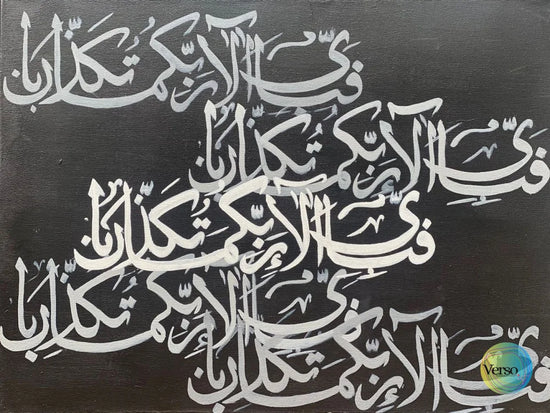 فبأي آلاء ربكما تكذبان
فبأي آلاء ربكما تكذبان
فبأي آلاء ربكما تكذبان
فبأي آلاء ربكما تكذبان
فبأي آلاء ربكما تكذبان
Verso